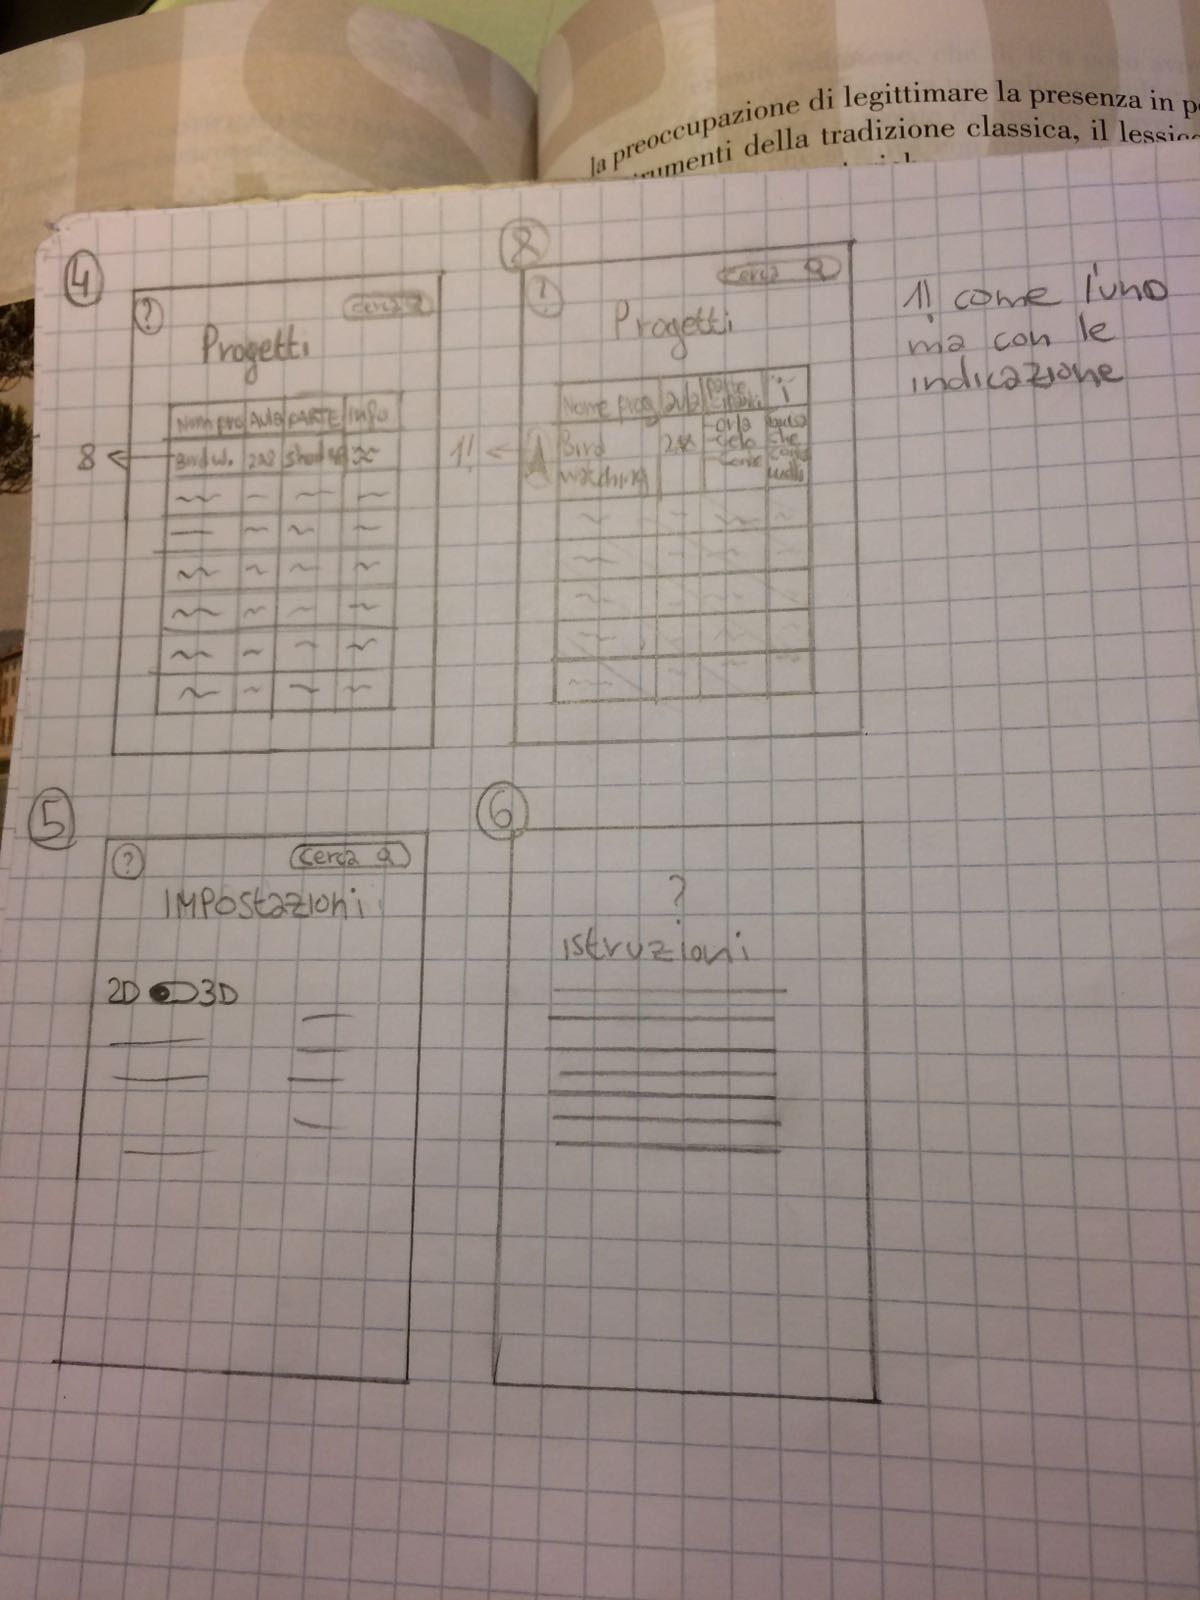 la preoccupazione di legittimare la presenza in
della tradizione classica, il
4
?
cerca
Progetti
Aula PARTE Info
8
8
?
cerca
Progetti
Nome prog aula i
Bird
1!
1! come l'uno
ma con le
indicazione
5
?
cerca
IMPOStazioni
2D 3D
6
?
istruzioni